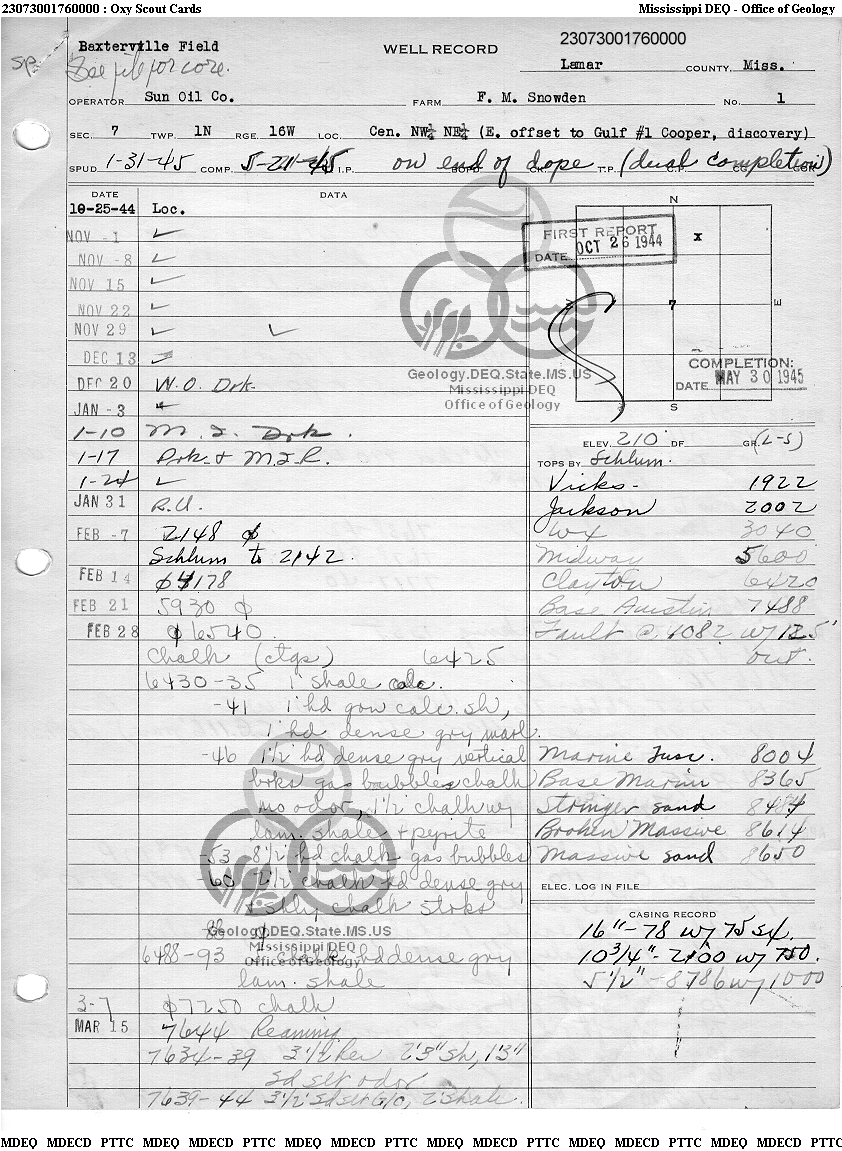 23073001760000 : Oxy Scout Cards
Mississippi DEQ - Office of Geology
Baxterville Field
WELL RECORD
23073001760000
See file for core.
Lamar COUNTY, Miss.
OPERATOR Sun Oil Co. FARM F. M. Snowden No. 1
SEC. 7 TWP. 1N RGE. 16W LOC. Cen. NW¼ NE¼ (E. offset to Gulf #1 Cooper, discovery)
SPUD 1-31-45 COMP. I.P. on end of dope (dual completion)
DATE DATA
10-25-44 Loc.
NOV -1 ✓
NOV -8 ✓
NOV 15 ✓
NOV 22 ✓
NOV 29 ✓ ✓
DEC 13 ✓
DEC 20 W.O. Drk.
JAN -3
1-10 M. I. Drk.
1-17 Drk. + M.I.R.
1-24 ✓
JAN 31 R.U.
FEB -7 2148 ϕ
Schlum to 2142.
FEB 14 ϕ 4178
FEB 21 5930 ϕ
FEB 28 ϕ 6540.
Chalk (ctgs) 6425
6430-35 1' shale calc.
-41 1' hd gry calc. sh,
1' hd dense gry marl.
-46 1½' hd dense gry vertical
brks gas bubbles chalk
no odor, 1½' chalk w/
lam. shale + pyrite
-53 8½' hd chalk gas bubbles
60 2½' chalk hd dense gry
+ shly chalk strks
6488-93 chalk, hd dense gry
lam. shale
3-7 ϕ7250 chalk
MAR 15 7644 Reaming
7634-39 3½' Rec 2'3" sh, 1'3"
sd slt odor
7639-44 3½' sd slt G/O, 2' shale.
N
FIRST REPORT
DATE OCT 26 1944
X
7
E
COMPLETION:
DATE MAY 30 1945
S
Geology.DEQ.State.MS.US
Mississippi DEQ
Office of Geology
ELEV. 210 DF GR (L-S)
TOPS BY Schlum.
Vicks- 1922
Jackson 2002
Wx 3040
Midway 5600
Clayton 6420
Base Austin 7488
Fault @ 7082 w/125'
out.
Marine Tusc. 8004
Base Marine 8365
Stringer sand 8484
Broken Massive 8614
Massive sand 8650
ELEC. LOG IN FILE
CASING RECORD
16"-78 w/ 75 sx.
10 3/4"-2100 w/ 750.
5 1/2"-8786 w/ 1000
Geology.DEQ.State.MS.US
Mississippi DEQ
Office of Geology
MDEQ MDECD PTTC MDEQ MDECD PTTC MDEQ MDECD PTTC MDEQ MDECD PTTC MDEQ MDECD PTTC MDEQ MDECD PTTC